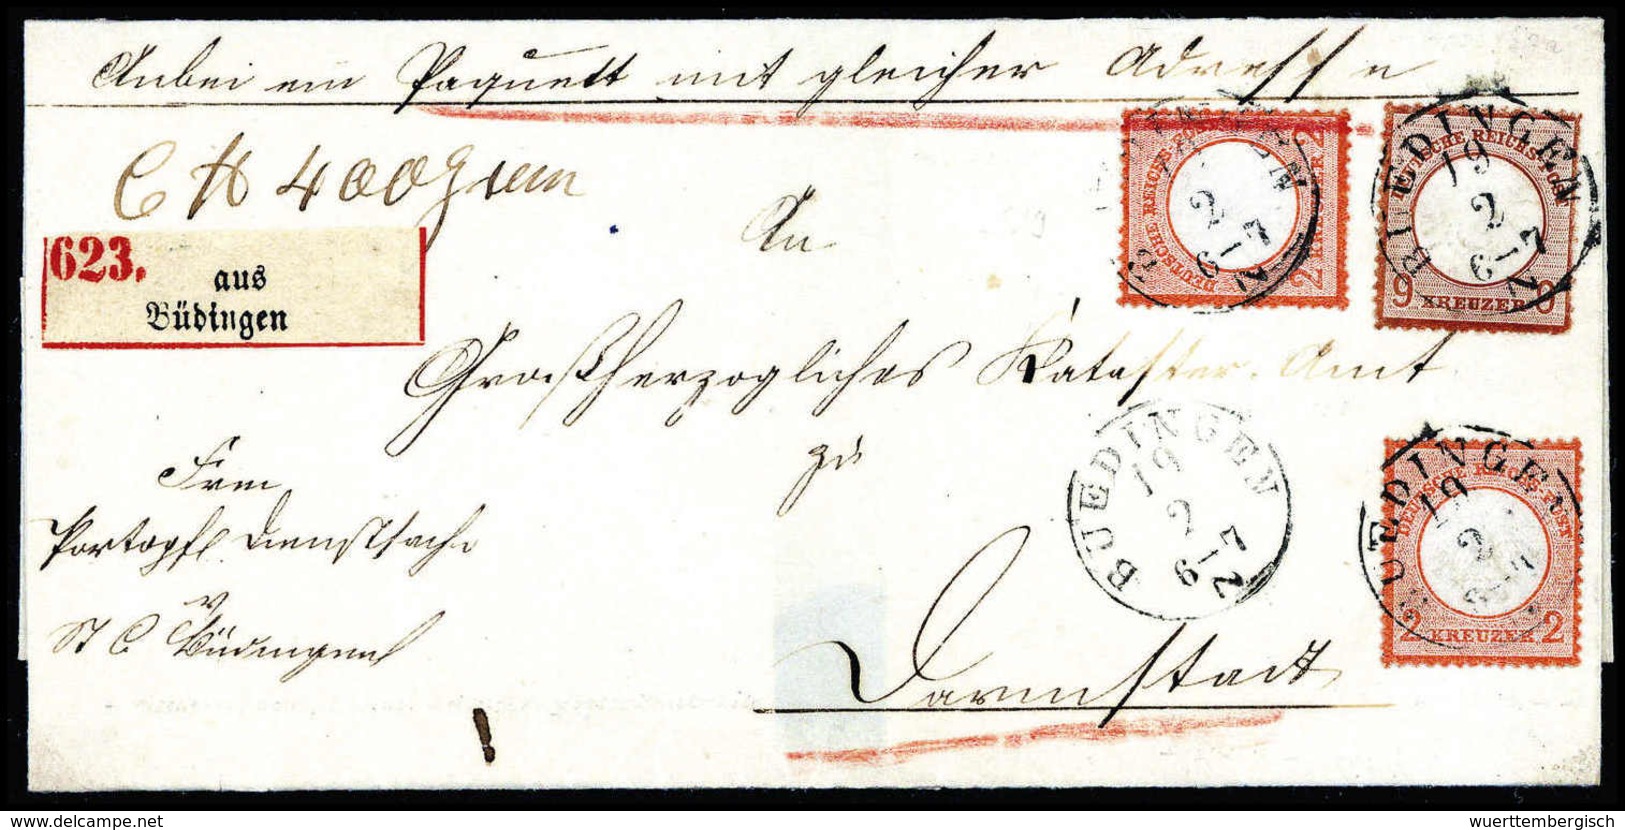 Anbei ein Paquett mit gleicher Adresse
C H 400 Grm
623.
aus
Büdingen
An
Großherzogliches Kataster Amt
zu
Darmstadt
Frei
Portopfl. Dienstsache
St C v Büdingen
DEUTSCHE REICHS-POST
2 KREUZER 2
BUEDINGEN
19
2
6-7
N
DEUTSCHE REICHS-POST
9 KREUZER 9
BUEDINGEN
19
2
6-7
N
BUEDINGEN
19
2
6-7
N
DEUTSCHE REICHS-POST
2 KREUZER 2
BUEDINGEN
19
2
www.delcampe.net
wuerttembergisch